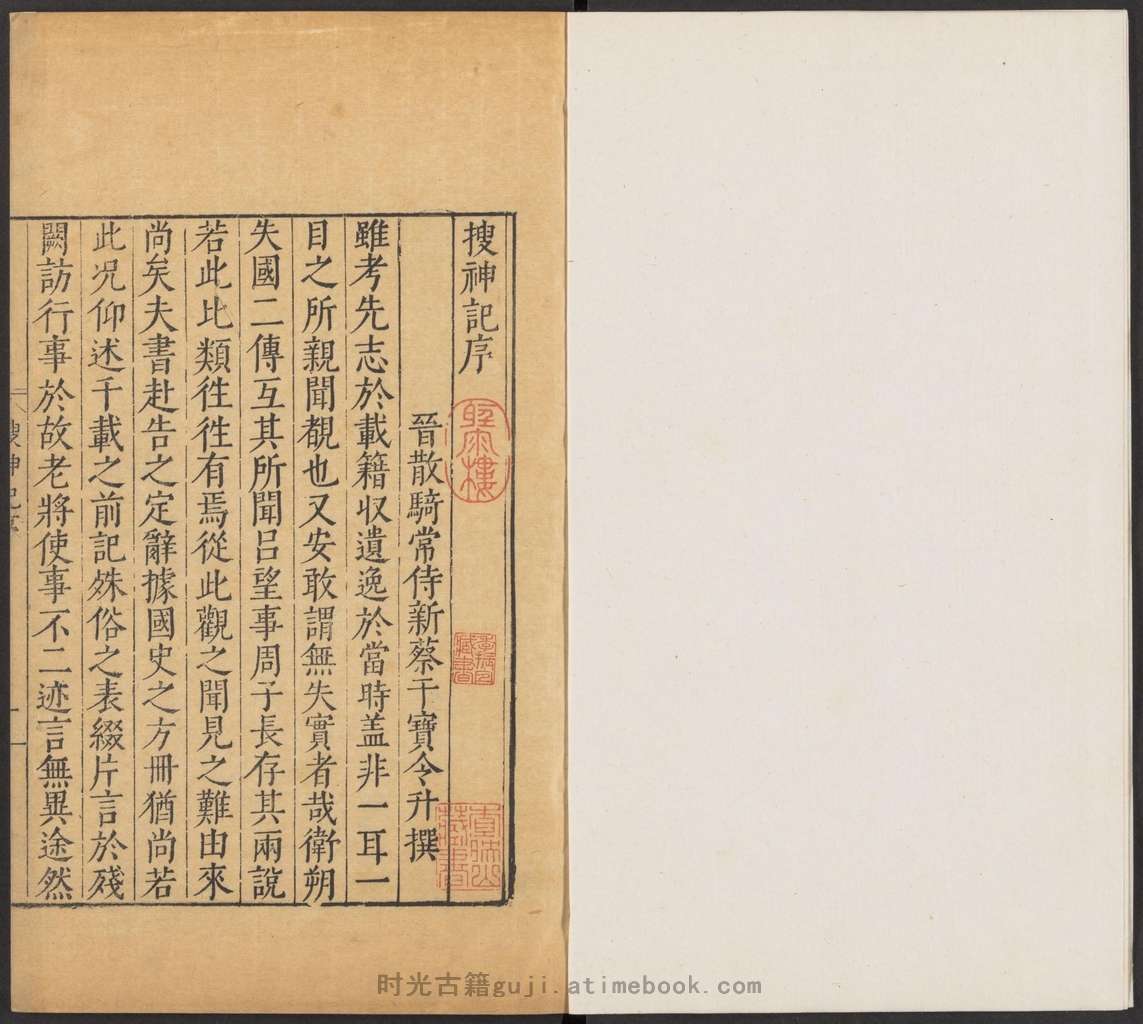 搜神記序
晉散騎常侍新蔡干寶令升撰
雖考先志於載籍収遺逸於當時盖非一耳一
目之所親聞覩也又安敢謂無失實者哉衛朔
失國二傳互其所聞呂望事周子長存其兩說
若此比類徃徃有焉從此觀之聞見之難由來
尚矣夫書赴告之定辭據國史之方冊猶尚若
此况仰述千載之前記殊俗之表綴片言於殘
闕訪行事於故老將使事不二迹言無異途然
搜神記序
一
藏書
时光古籍guji.atimebook.com